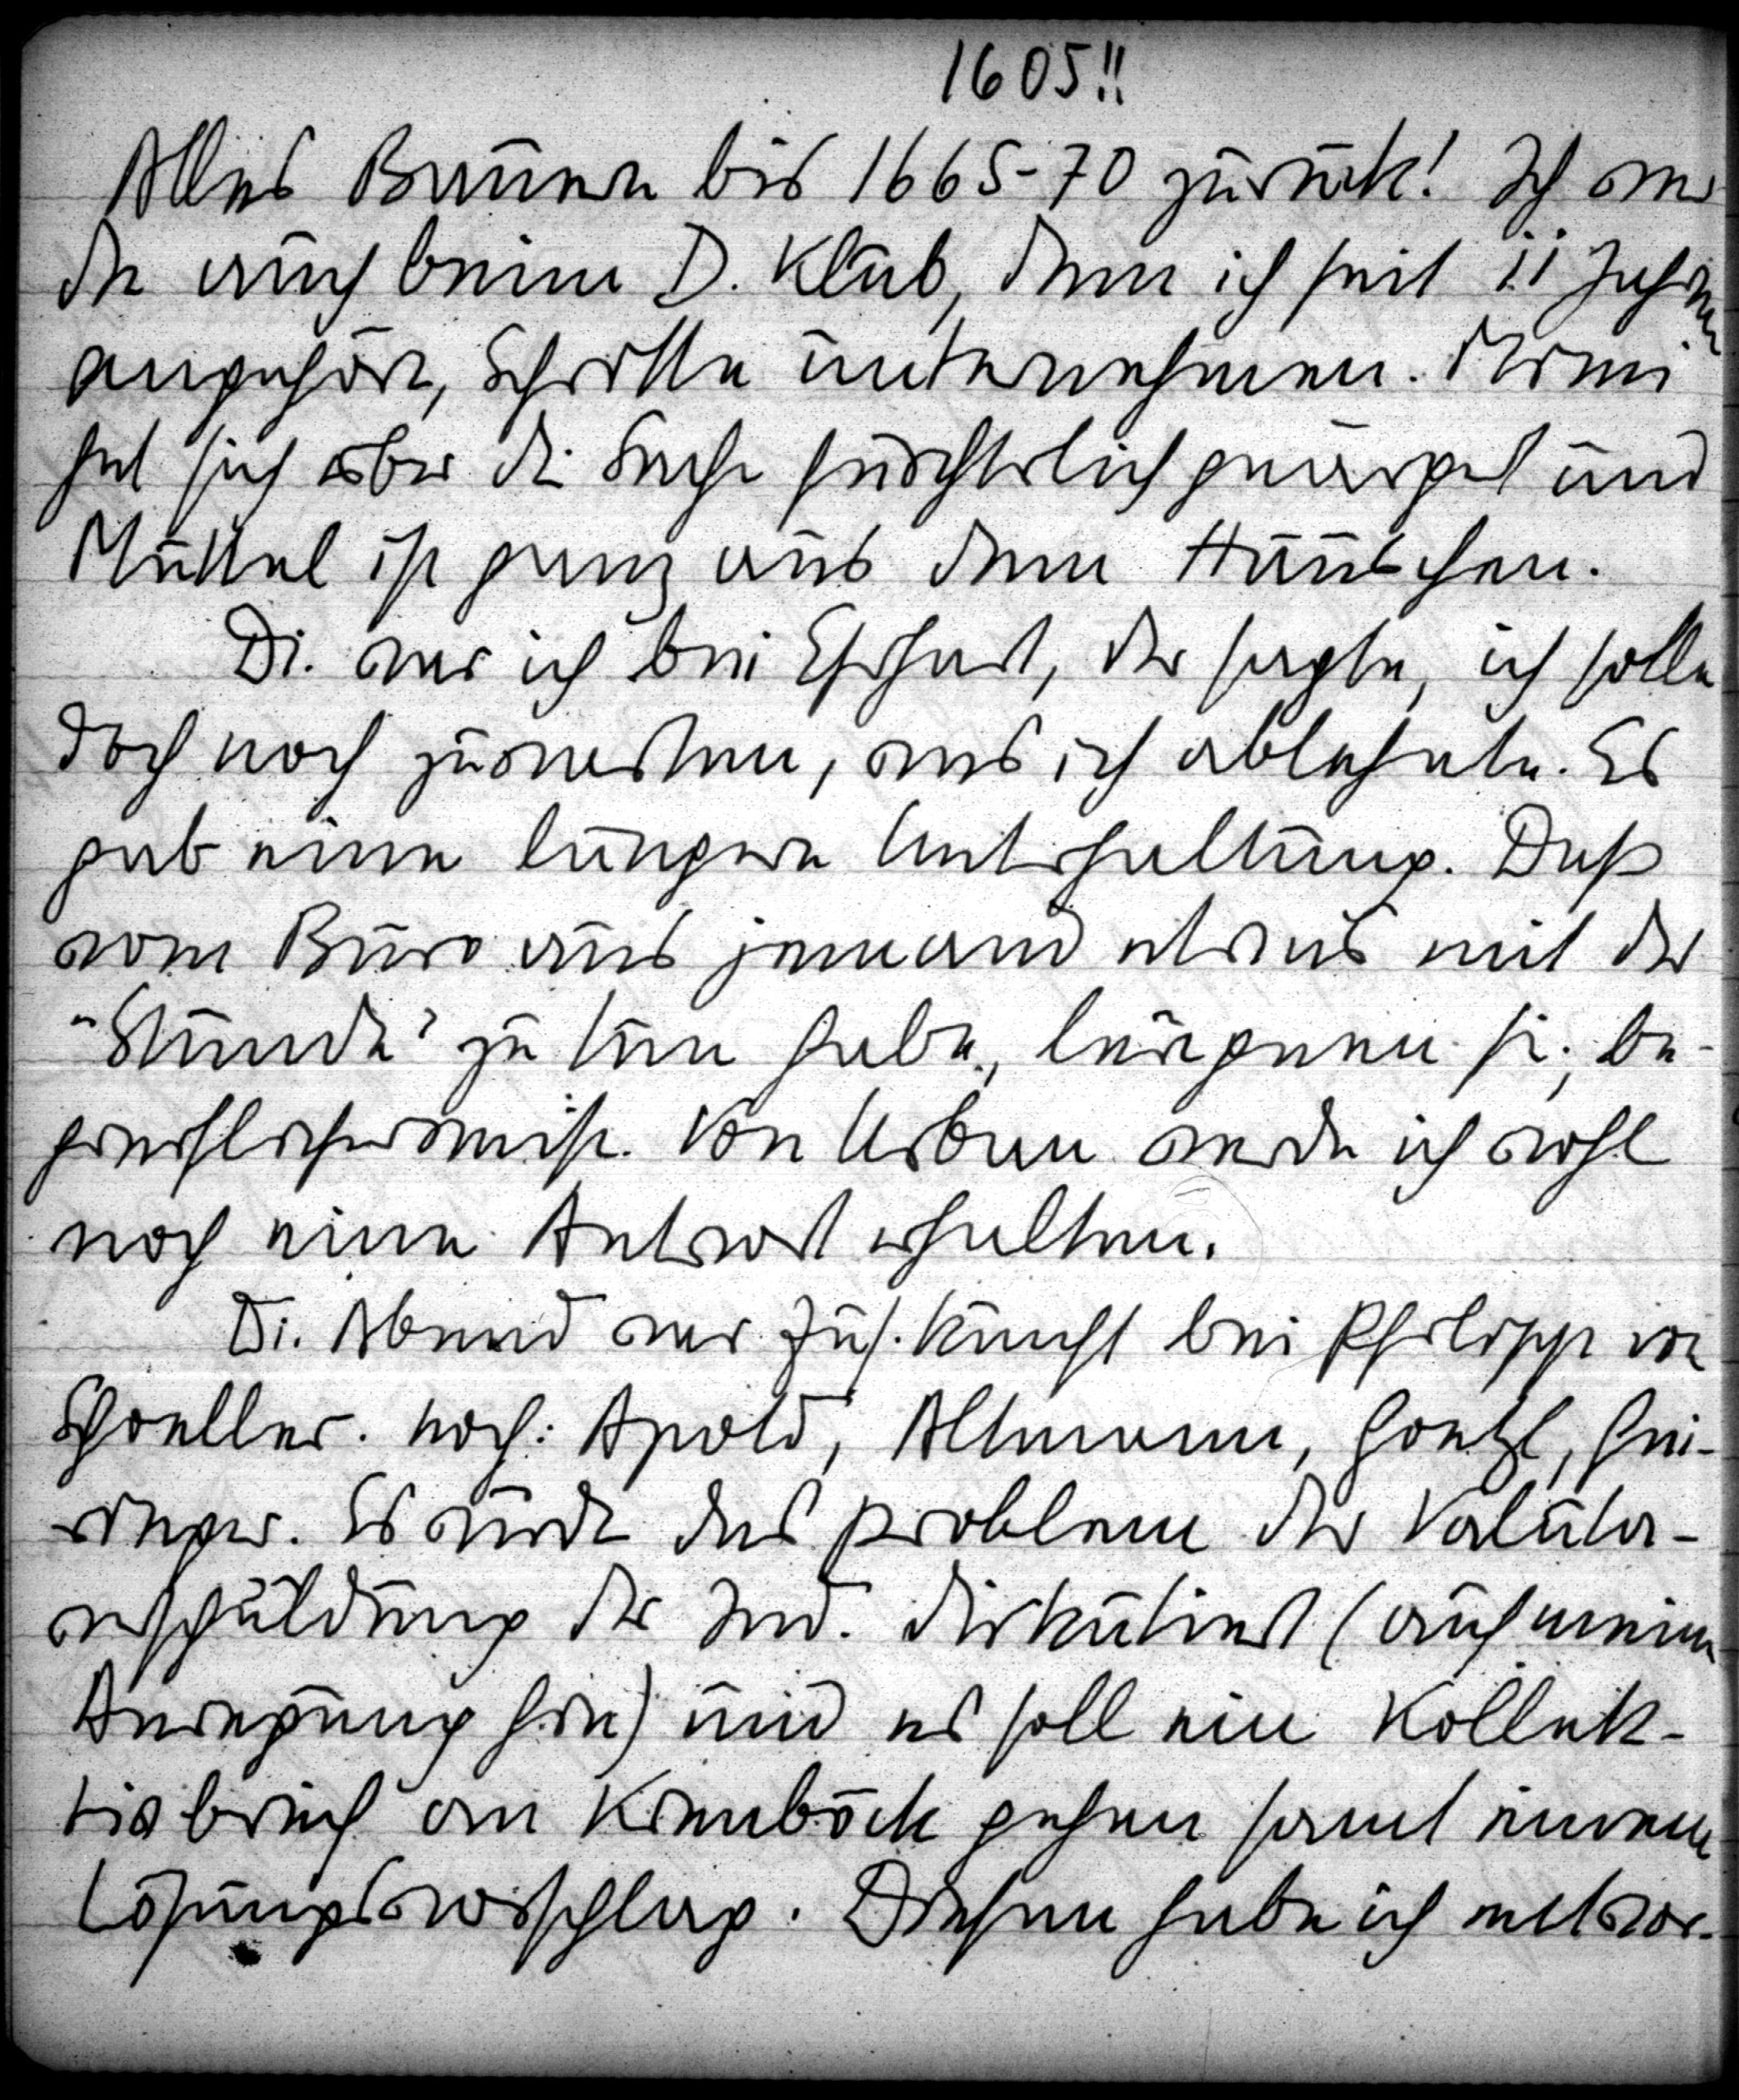 1605!!
Alles Bauern bis 1665-70 zurück! Ich wer-
de auch beim D. Klub, dem ich seit 11 Jahren
angehöre, Schritte unternehmen. Mimi
hat sich über die Sache fürchterlich geärgert und
Muttel ist ganz aus dem Häuschen.
Di. war ich bei Ehrhart, der sagte, ich solle
doch noch zuwarten, was ich ablehnte. Es
gab eine längere Unterhaltung. Daß
vom Büro aus jemand etwas mit der
"Stunde" zu tun habe, leugnen sie, be-
greiflicherweise. Von Urban werde ich wohl
noch eine Antwort erhalten.
Di. Abend war Zus.kunft bei Philipp von
Schoeller. noch: Apold, Altmann, Goetzl, Hei-
Es wurde das Problem der Valuta-
verschuldung der Ind. diskutiert (auf meine
Anregung hin) und es soll ein Kollek-
tivbrief an Kienböck gehen samt einem
Lösungsvorschlag. Diesen habe ich entwor-